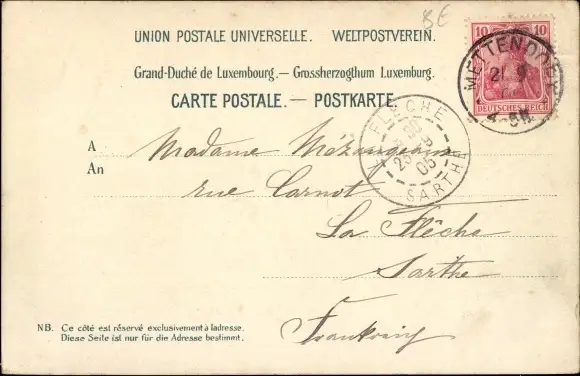 8€
UNION POSTALE UNIVERSELLE. WELTPOSTVEREIN.
Grand-Duché de Luxembourg.— Grossherzogthum Luxemburg.
CARTE POSTALE. — POSTKARTE.
10 10
DEUTSCHES REICH
METTENDORF
21 9
LA FLÈCHE
05
SARTHE
A Madame
An rue Carnot
La Flêche
Sarthe
Frankreich
NB. Ce côté est réservé exclusivement à ladresse.
Diese Seite ist nur für die Adresse bestimmt.